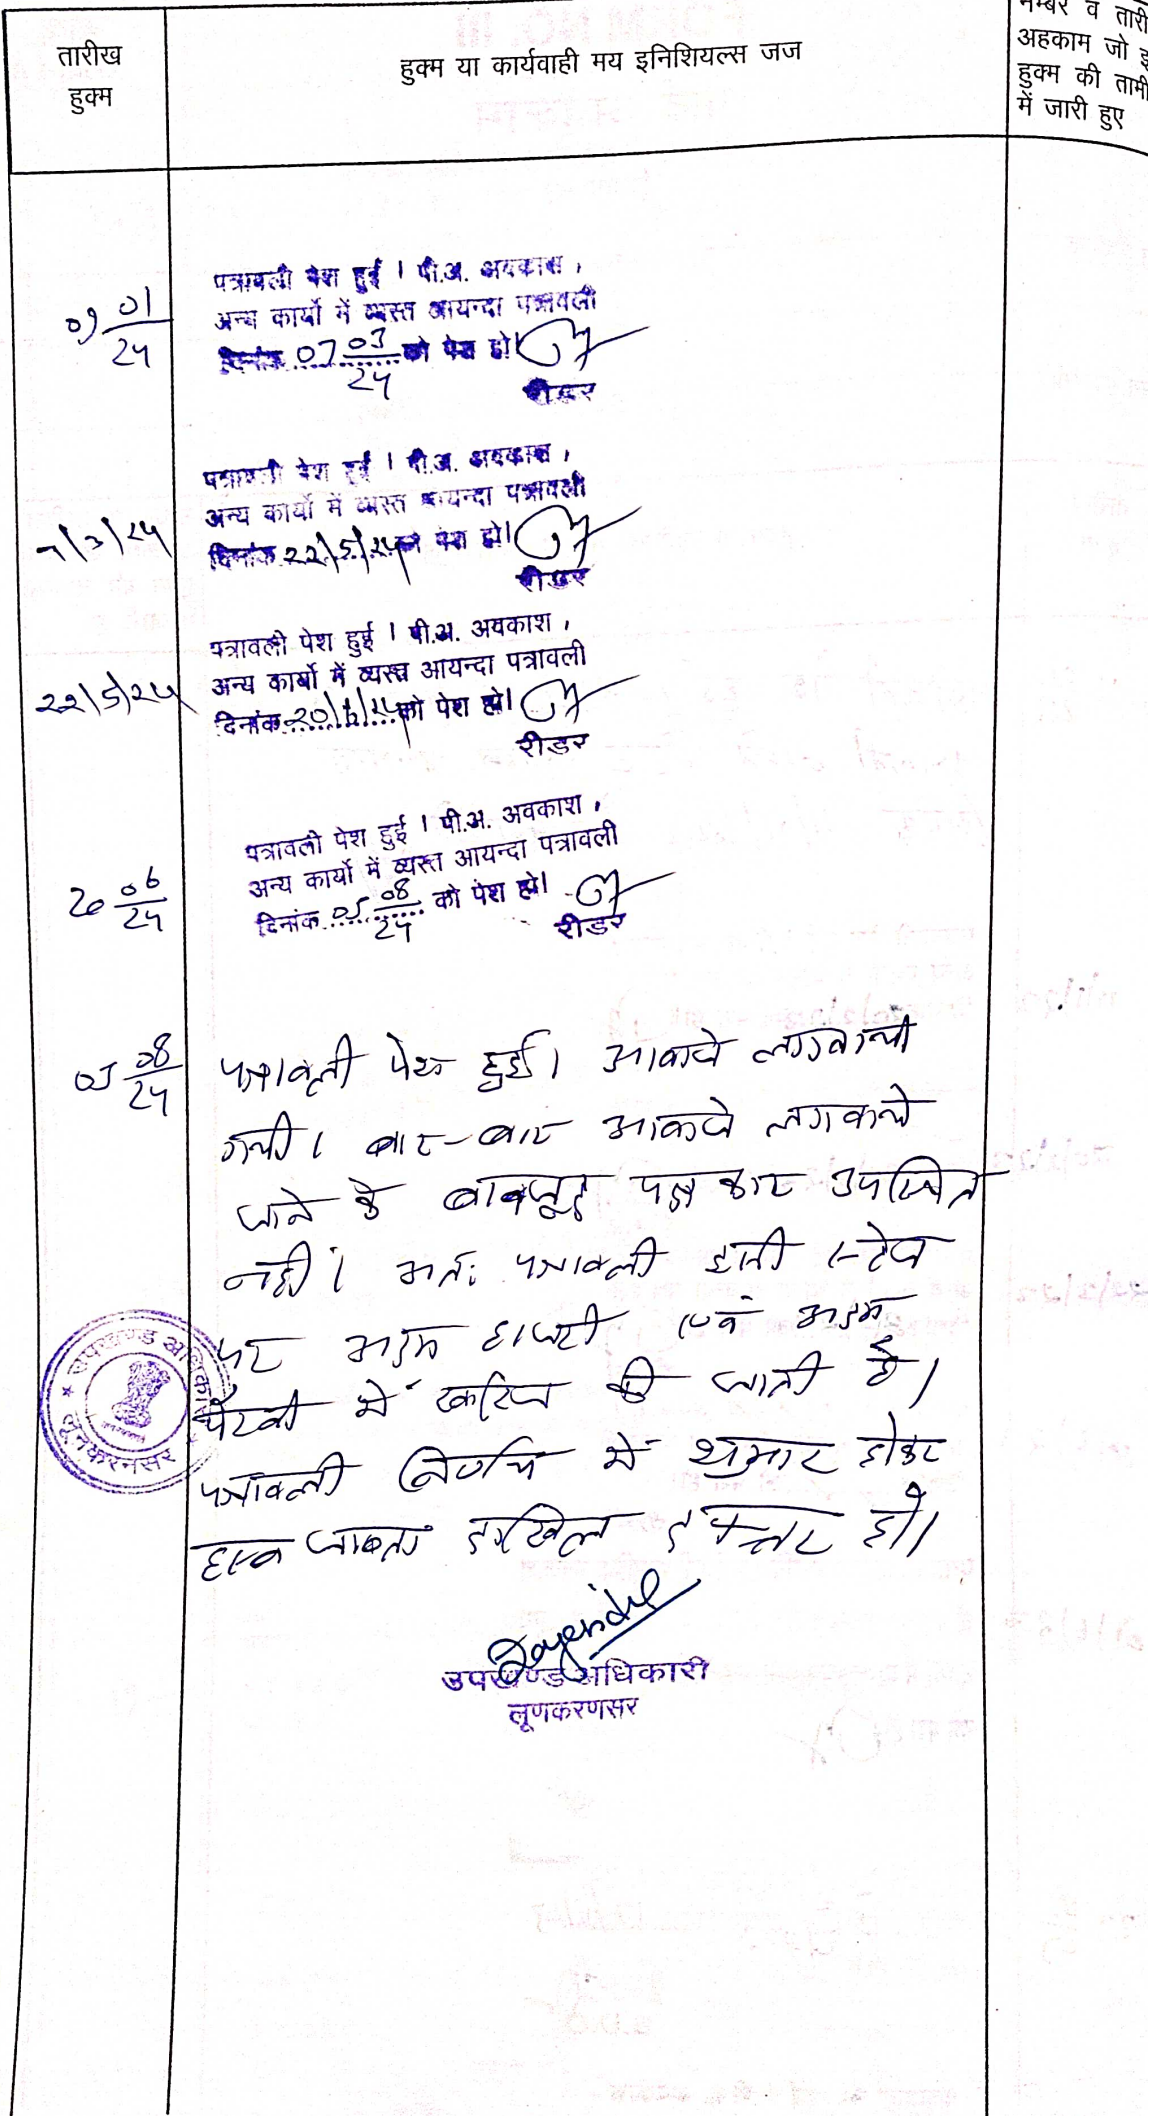 तारीख
हुक्म
हुक्म या कार्यवाही मय इनिशियल्स जज
नम्बर व तारी
अहकाम जो इ
हुक्म की तामी
में जारी हुए
09 01/24
पत्रावली पेश हुई । पी.अ. अवकाश,
अन्य कार्यो में व्यस्त आयन्दा पत्रावली
दिनांक 07 03/24 को पेश हो।
रीडर
7/3/24
पत्रावली पेश हुई । पी.अ. अवकाश,
अन्य कार्यो में व्यस्त आयन्दा पत्रावली
दिनांक 22/5/24 को पेश हो।
रीडर
22/5/24
पत्रावली पेश हुई । पी.अ. अवकाश,
अन्य कार्यो में व्यस्त आयन्दा पत्रावली
दिनांक 20/6/24 को पेश हो।
रीडर
20 06/24
पत्रावली पेश हुई । पी.अ. अवकाश,
अन्य कार्यो में व्यस्त आयन्दा पत्रावली
दिनांक 05 08/24 को पेश हो।
रीडर
05 08/24
पत्रावली पेश हुई। आवाजे लगवायी
गयी। बार-बार आवाजे लगवाये
जाने के बावजूद पक्षकार उपस्थित
नहीं। अतः पत्रावली इसी स्टेज
पर अदम हाजरी एवं अदम
पैरवी में खारिज की जाती है।
पत्रावली निर्णय में शुमार होकर
हस्ब जाब्ता दाखिल दफ्तर हो।
उपखण्ड अधिकारी
लूनकरनसर
उपखण्ड अधिकारी
लूणकरणसर